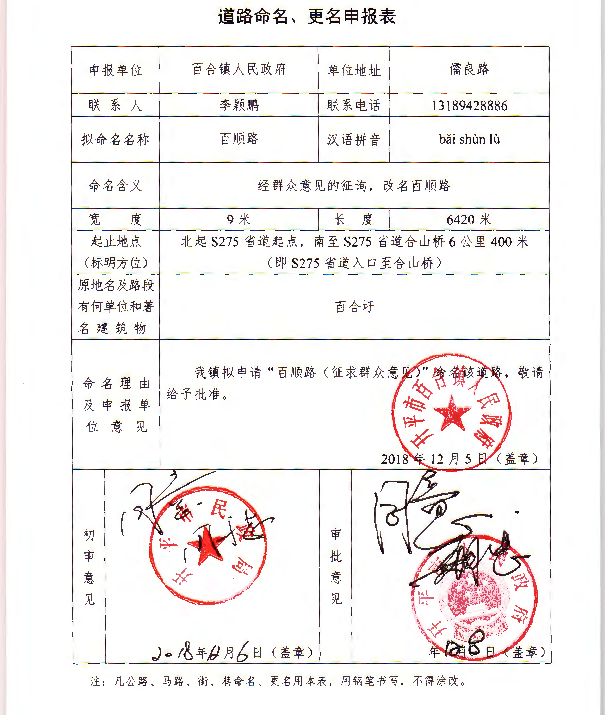 道路命名、更名申报表
申报单位 百合镇人民政府 单位地址 儒良路
联系人 李颖鹏 联系电话 13189428886
拟命名名称 百顺路 汉语拼音 bǎi shùn lù
命名含义 经群众意见的征询，改名百顺路
宽度 9米 长度 6420米
起止地点
（标明方位）
北起S275省道起点，南至S275省道合山桥6公里400米
（即S275省道入口至合山桥）
原地名及路段
有何单位和著
名建筑物
百合圩
命名理由
及申报单
位意见
我镇拟申请“百顺路（征求群众意见）”命名该道路，敬请
给予批准。
开平市百合镇人民政府
2018年12月5日（盖章）
初审意见
同意
开平市民政局
2018年12月6日（盖章）
审批意见
同意
开平市人民政府
年12月8日（盖章）
注：凡公路、马路、街、巷命名、更名用本表，用钢笔书写，不得涂改。